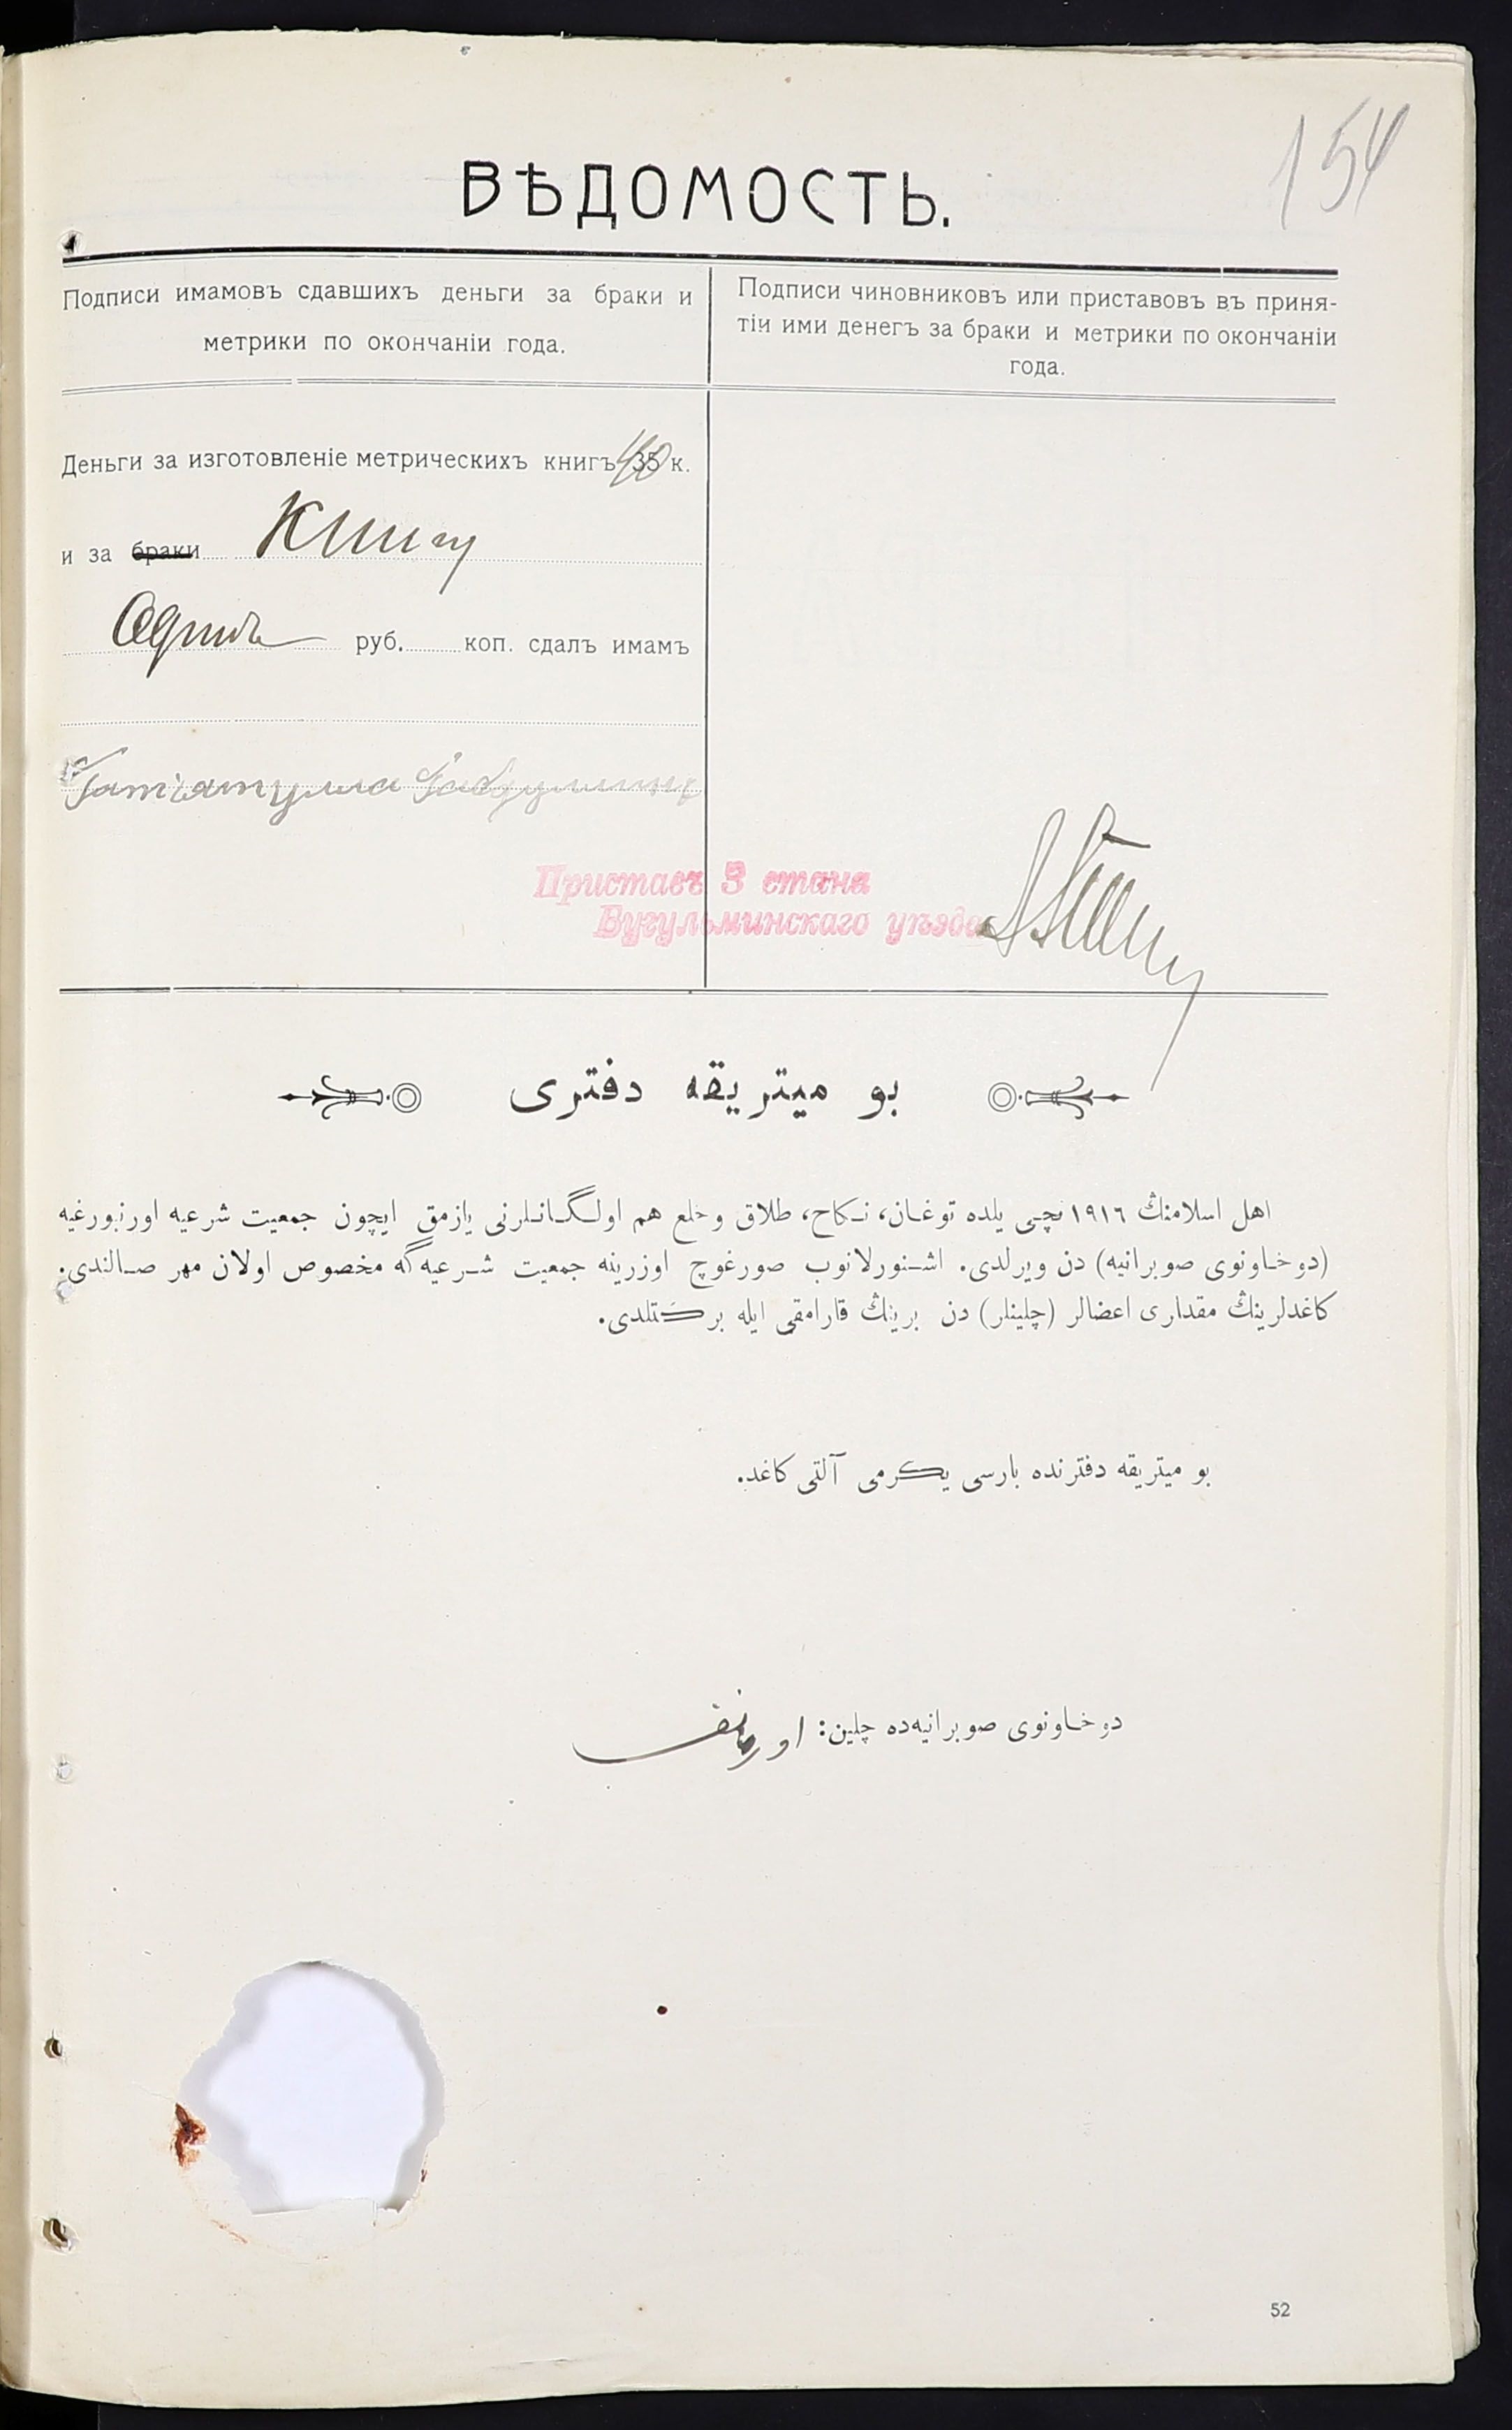 154
ВѢДОМОСТЬ.
Подписи имамовъ сдавшихъ деньги за браки и
метрики по окончаніи года.
Подписи чиновниковъ или приставовъ въ приня-
тіи ими денегъ за браки и метрики по окончаніи
года.
Деньги за изготовленіе метрическихъ книгъ 35 40 к.
и за браки книгу
Одинъ руб. коп. сдалъ имамъ
Гатіатулла Габдуллинъ
Приставъ 3 стана
Бугульминскаго уѣзда
بو ميتريقه دفتری
اهل اسلامنڭ ١٩١٦ نچی يلده توغان، نكاح، طلاق وخلع هم اولگانلرنی يازمق ايچون جمعيت شرعيه اورنبورغيه
(دوخاونوی صوبرانيه) دن ويرلدی. اشنورلانوب صورغوچ اوزرينه جمعيت شرعيه‌گه مخصوص اولان مهر صالندی.
كاغدلرينڭ مقداری اعضالر (چلينلر) دن برينڭ قارامقی ايله بركتلدی.
بو ميتريقه دفترنده بارسی يكرمی آلتی كاغد.
دوخاونوی صوبرانيه‌ده چلين:
52